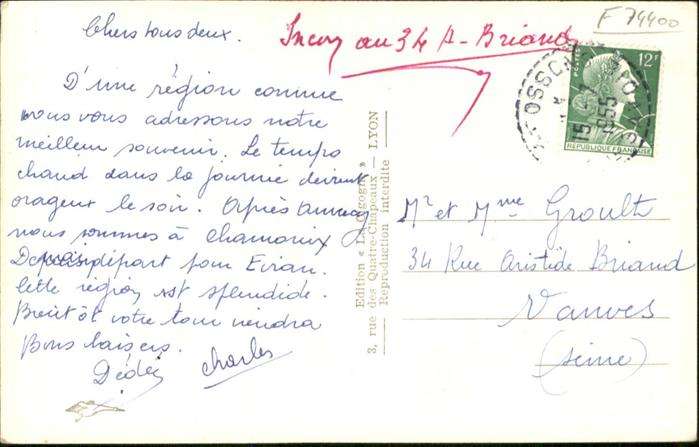 Chers tous deux.
D'une région comme
nous vous adressons notre
meilleur souvenir. Le temps
chaud dans la journée devient
orageux le soir. Après Annecy
nous sommes à Chamonix
Demain départ pour Evian.
Cette région est splendide.
Bientôt votre tour viendra
Bons baisers.
Dédée Charles
Edition « La Cigogne »
3, rue des Quatre-Chapeaux — LYON
Reproduction interdite
au 34 A. Briand
F 74400
12F
POSTES
REPUBLIQUE FRANÇAISE
15 1955
Mr et Mme Groult
34 Rue Aristide Briand
Vanves
(Seine)